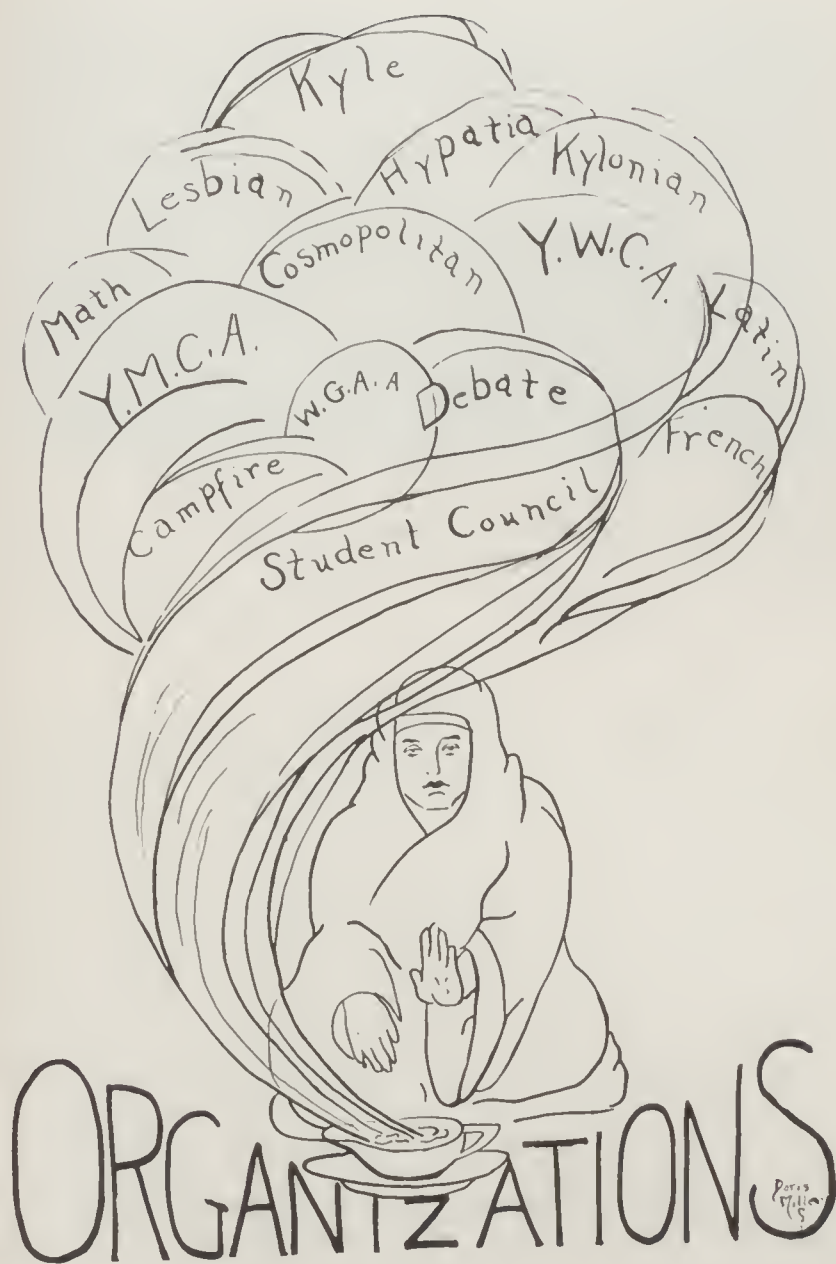 Kyle
Lesbian
Hypatia
Kylonian
Cosmopolitan
Y.W.C.A.
Math
Latin
Y.M.C.A.
W.G.A.A
Debate
French
Campfire
Student Council
ORGANIZATIONS
Doris
Miller